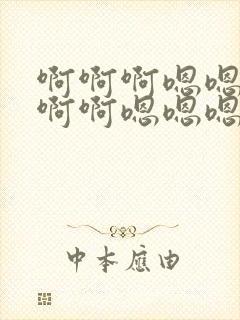 啊啊啊嗯嗯
啊啊嗯嗯嗯
中本应由